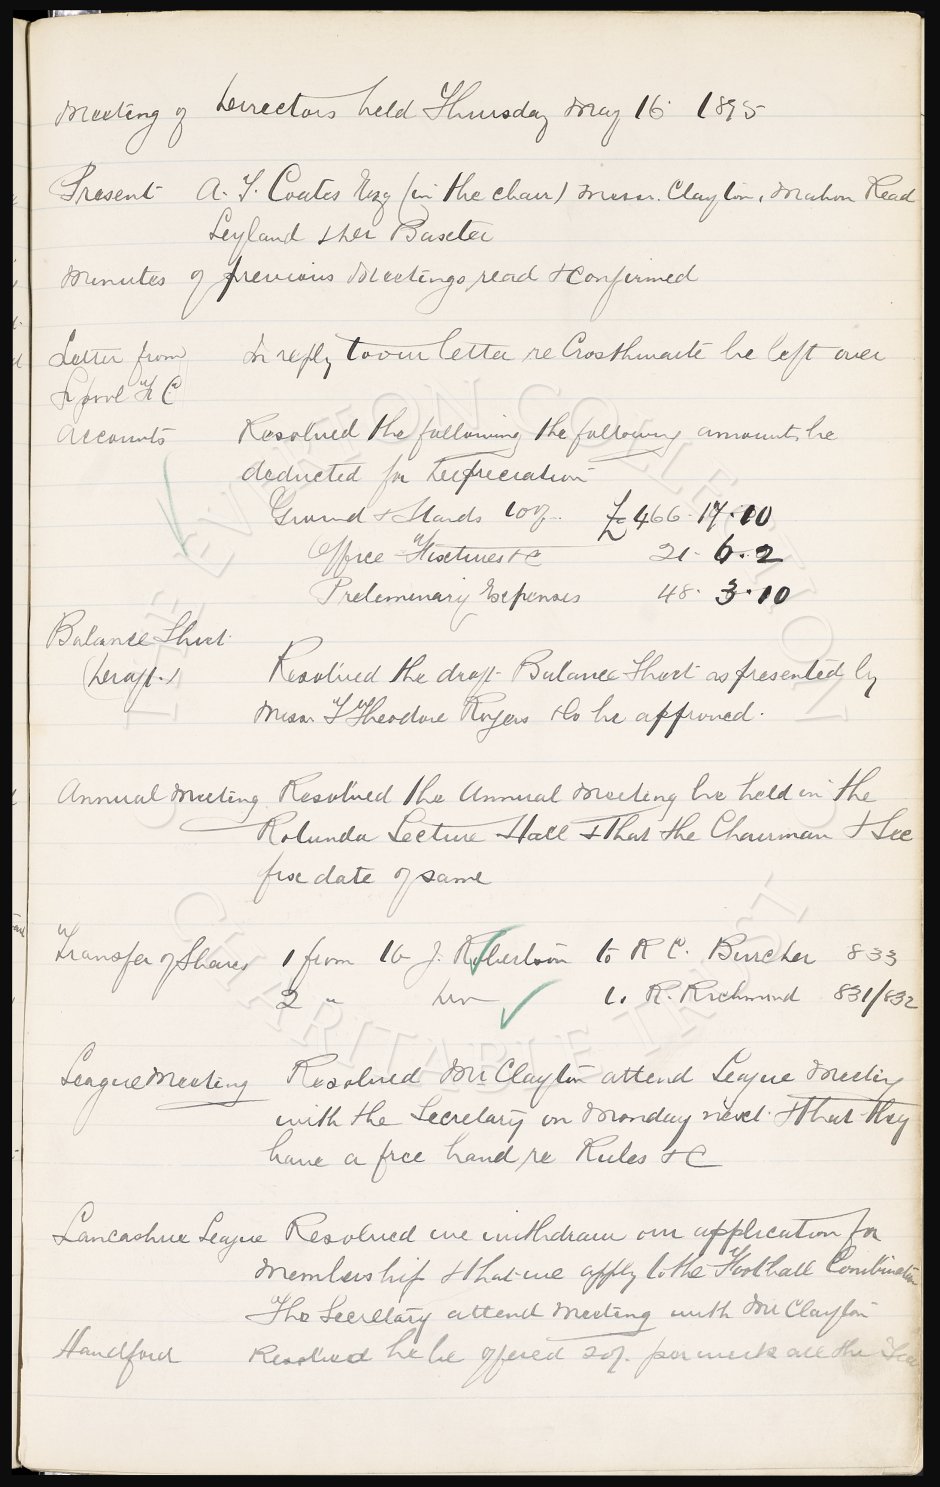 Meeting of Directors held Thursday May 16. 1895
Present A. T. Coates Esq (in the chair) Messrs. Clayton, Mahon Read
Leyland & Dr Baxter
Minutes of previous Meetings read & confirmed
Letter from In reply to our letter re Crosthwaite be left over
L'pool F C
Accounts Resolved the following the following amounts be
deducted for Depreciation
Ground & Stands 10%. £466. 17. 10
Office Fixtures & C 21. 6. 2
Preliminary Expenses 48. 3. 10
Balance Sheet.
(Draft.) Resolved the draft Balance Sheet as presented by
Messrs T Theodore Rogers & Co be approved.
Annual Meeting Resolved the Annual Meeting be held in the
Rotunda Lecture Hall & that the Chairman & Sec
fix date of same
Transfer of Shares 1 from J. Robertson to R C. Burcher 833
2 " R. Richmond 831/832
League Meeting Resolved Mr Clayton attend League Meeting
with the Secretary on Monday next & that they
have a free hand re Rules & C
Lancashire League Resolved we withdraw our application for
Membership & that we apply to the Football Combination
The Secretary attend Meeting with Mr Clayton
Handford Resolved he be offered 20/. per week all the
THE EVERTON COLLECTION
CHARITABLE TRUST